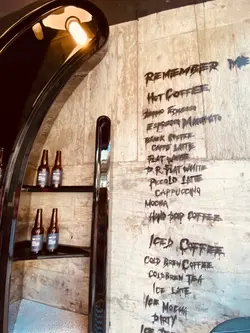 REMEMBER ME
HOT COFFEE
ESPRESSO
ESPRESSO MACCHIATO
BLACK COFFEE
CAFFE LATTE
FLAT WHITE
D.R. FLAT WHITE
PICCOLO LATE
CAPPUCCINO
MOCHA
HAND DRIP COFFEE
ICED COFFEE
COLD BREW COFFEE
COLD BREW TEA
ICE LATE
ICE MOCHA
DIRTY